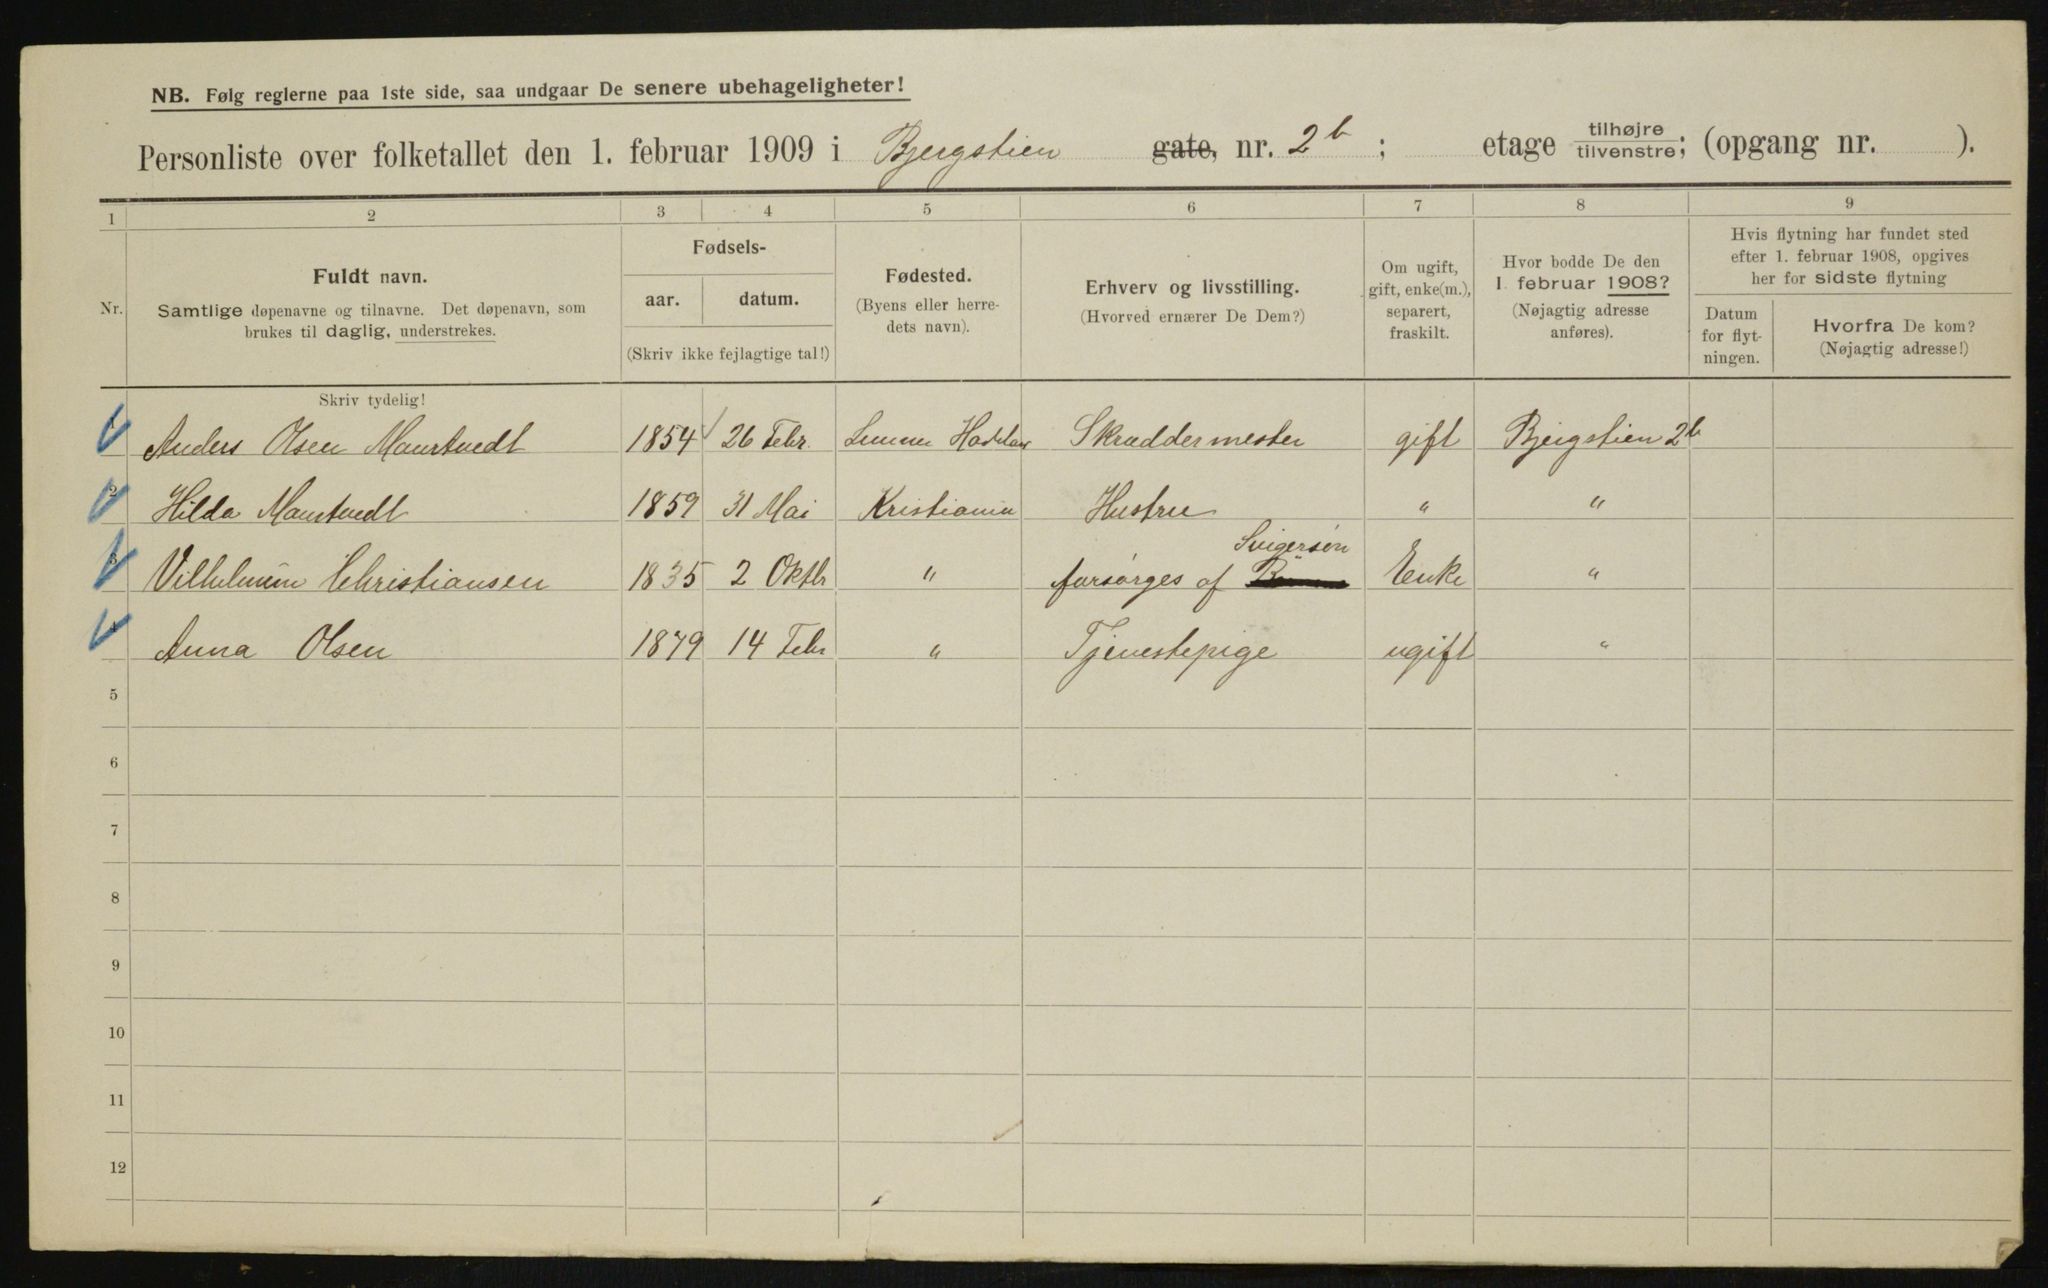 NB. Følg reglerne paa 1ste side, saa undgaar De senere ubehageligheter!
Personliste over folketallet den 1. februar 1909 i Bjergstien gate, nr. 2b ; etage tilhøjre tilvenstre; (opgang nr. ).
1 2 3 4 5 6 7 8 9
Nr.
Fuldt navn.
Samtlige døpenavne og tilnavne. Det døpenavn, som
brukes til daglig, understrekes.
Skriv tydelig!
Fødsels-
aar. datum.
(Skriv ikke fejlagtige tal!)
Fødested.
(Byens eller herre-
dets navn).
Erhverv og livsstilling.
(Hvorved ernærer De Dem?)
Om ugift,
gift, enke(m.),
separert,
fraskilt.
Hvor bodde De den
1. februar 1908?
(Nøjagtig adresse
anføres).
Hvis flytning har fundet sted
efter 1. februar 1908, opgives
her for sidste flytning
Datum
for flyt-
ningen.
Hvorfra De kom?
(Nøjagtig adresse!)
1 Anders Olsen Maurtvedt 1854 26 Febr. Lunner Skræddermester gift Bjergstien 2b
2 Hilda Maurtvedt 1859 31 Mai Kristiania Hustru " "
3 Christiansen 1835 2 Oktbr " forsørges af Svigersøn Enke "
4 Anna Olsen 1879 14 Febr " Tjenestepige ugift "
5
6
7
8
9
10
11
12